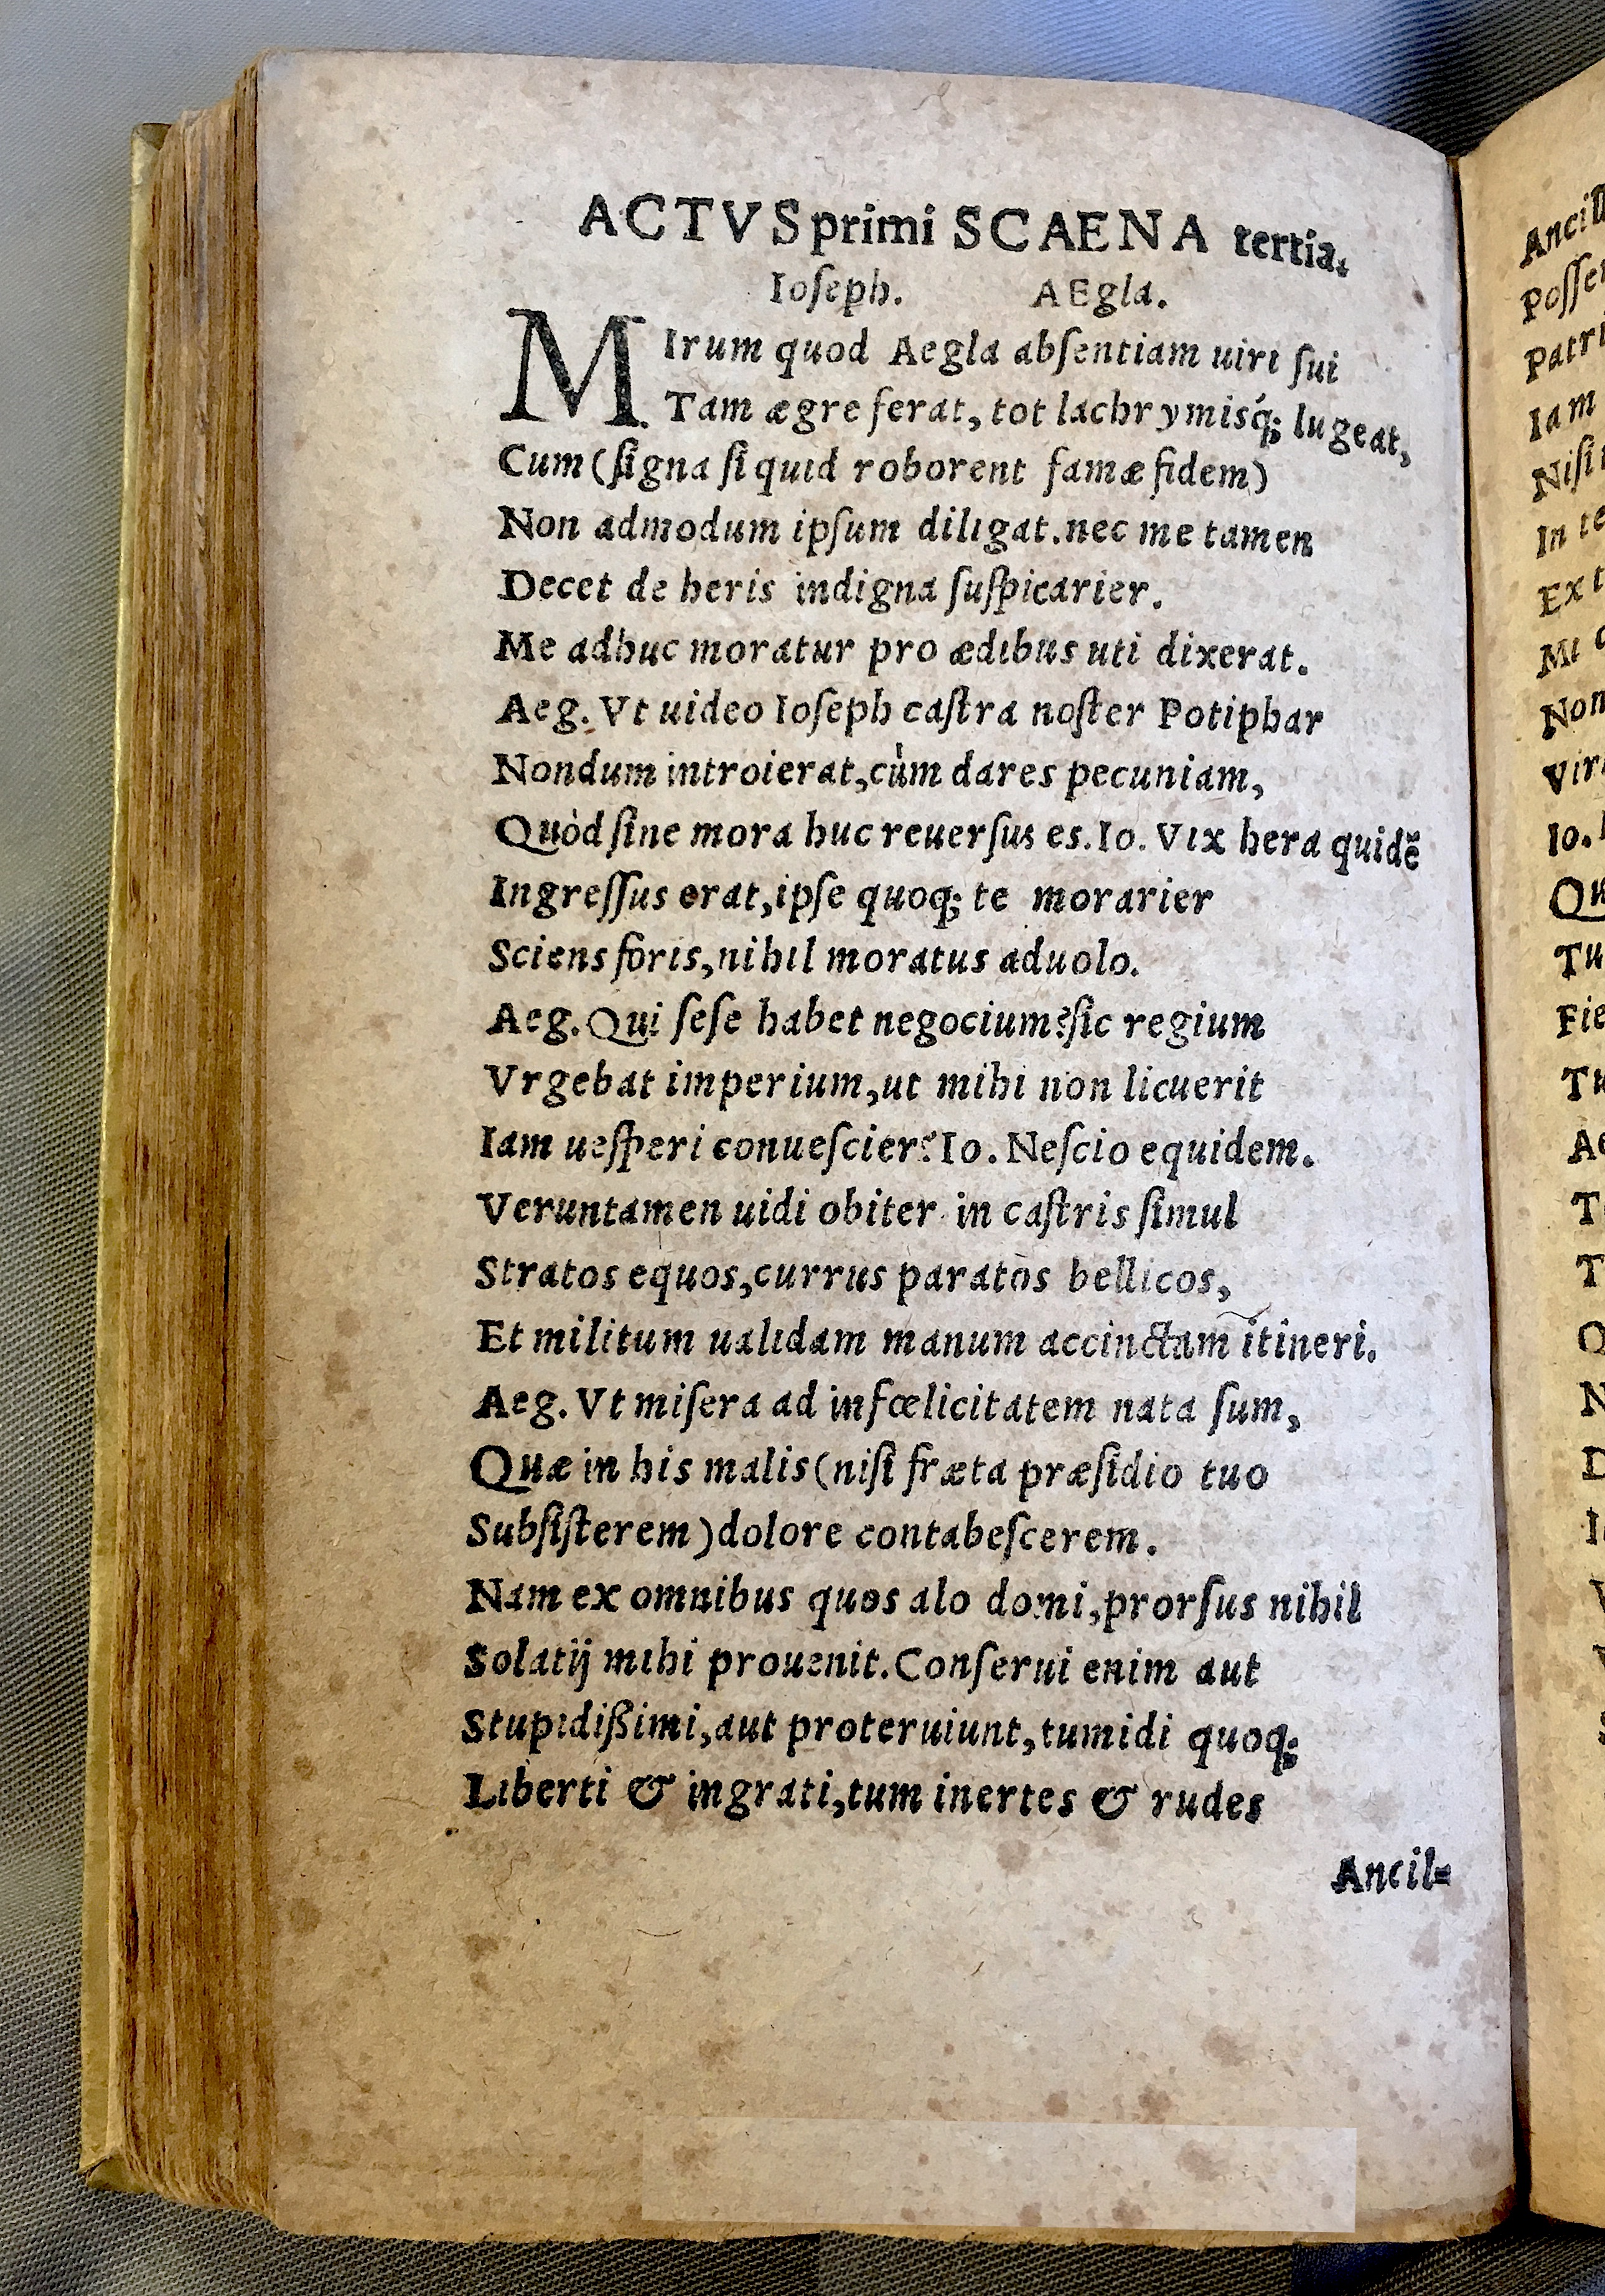 ACTVS primi SCAENA tertia.
Ioſeph. AEgla.
MIrum quod Aegla abſentiam uiri ſui
Tam ægre ferat, tot lachrymisq́; lugeat,
Cum (ſigna ſi quid roborent famæ fidem)
Non admodum ipſum diligat. nec me tamen
Decet de heris indigna ſuſpicarier.
Me adhuc moratur pro ædibus uti dixerat.
Aeg. Vt uideo Ioſeph caſtra noſter Potiphar
Nondum introierat, cùm dares pecuniam,
Quòd ſine mora huc reuerſus es. Io. Vix hera quidē
Ingreſſus erat, ipſe quoq; te morarier
Sciens foris, nihil moratus aduolo.
Aeg. Qui ſeſe habet negocium? ſic regium
Vrgebat imperium, ut mihi non licuerit
Iam ueſperi conueſcier? Io. Neſcio equidem.
Veruntamen uidi obiter in caſtris ſimul
Stratos equos, currus paratos bellicos,
Et militum ualidam manum accinctam itineri.
Aeg. Vt miſera ad infœlicitatem nata ſum,
Quæ in his malis (niſi fræta præſidio tuo
Subſiſterem) dolore contabeſcerem.
Nam ex omnibus quos alo domi, prorſus nihil
Solatij mihi prouenit. Conſerui enim aut
Stupidißimi, aut proteruiunt, tumidi quoq;
Liberti & ingrati, tum inertes & rudes
Ancil=